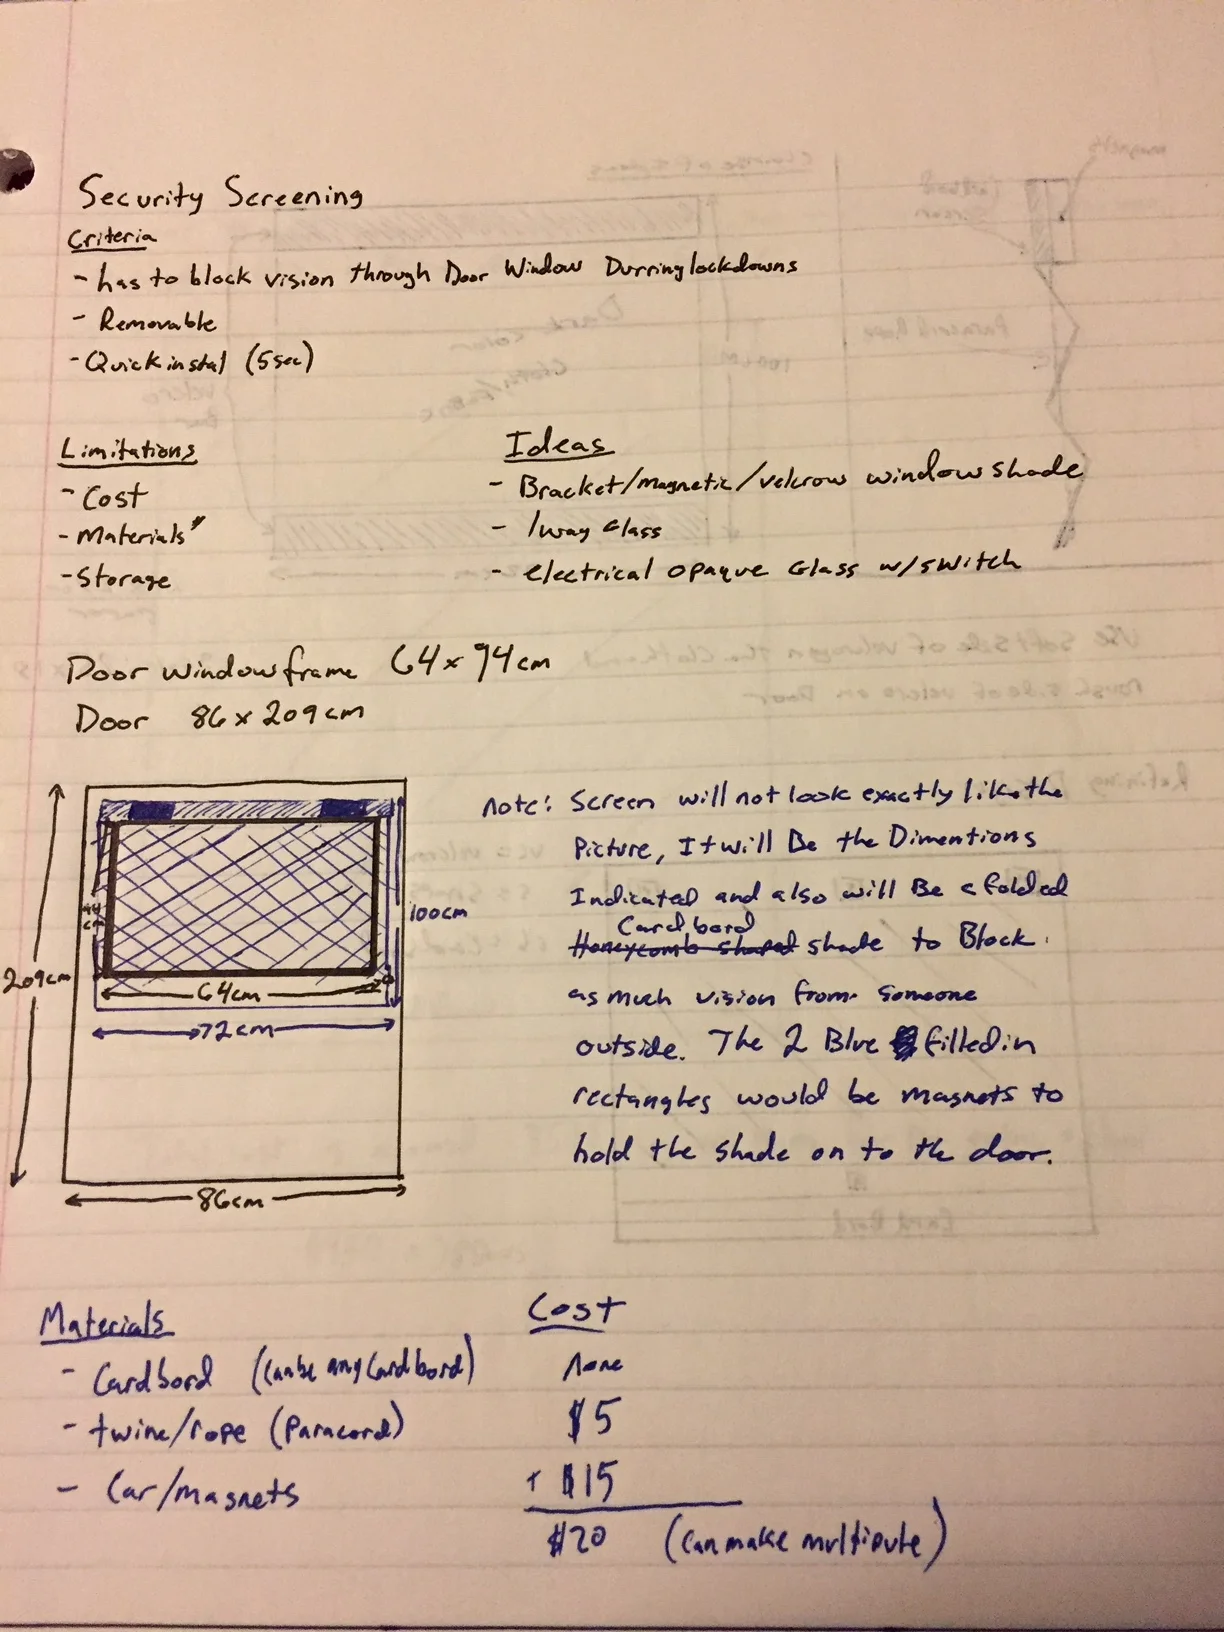 Security Screening
Criteria
- has to block vision through Door Window Durring lockdowns
- Removable
- Quick instal (5sec)
Limitations
- Cost
- Materials
- Storage
Ideas
- Bracket/magnetic/velcrow window shade
- 1way Glass
- electrical opaque Glass w/switch
Door window frame 64x94cm
Door 86x209cm
209cm
94 cm
64cm
72cm
100cm
86cm
note: Screen will not look exactly like the
Picture, It will Be the Dimentions
Indicated and also will Be a folded
Cardbord
Honeycomb shaped shade to Block
as much vision from someone
outside. The 2 Blue filled in
rectangles would be magnets to
hold the shade on to the door.
Materials
- Cardbord (Can be any Cardbord)
- twine/rope (Paracord)
- Car/magnets
Cost
none
$5
+ $15
$20 (Can make multipule)